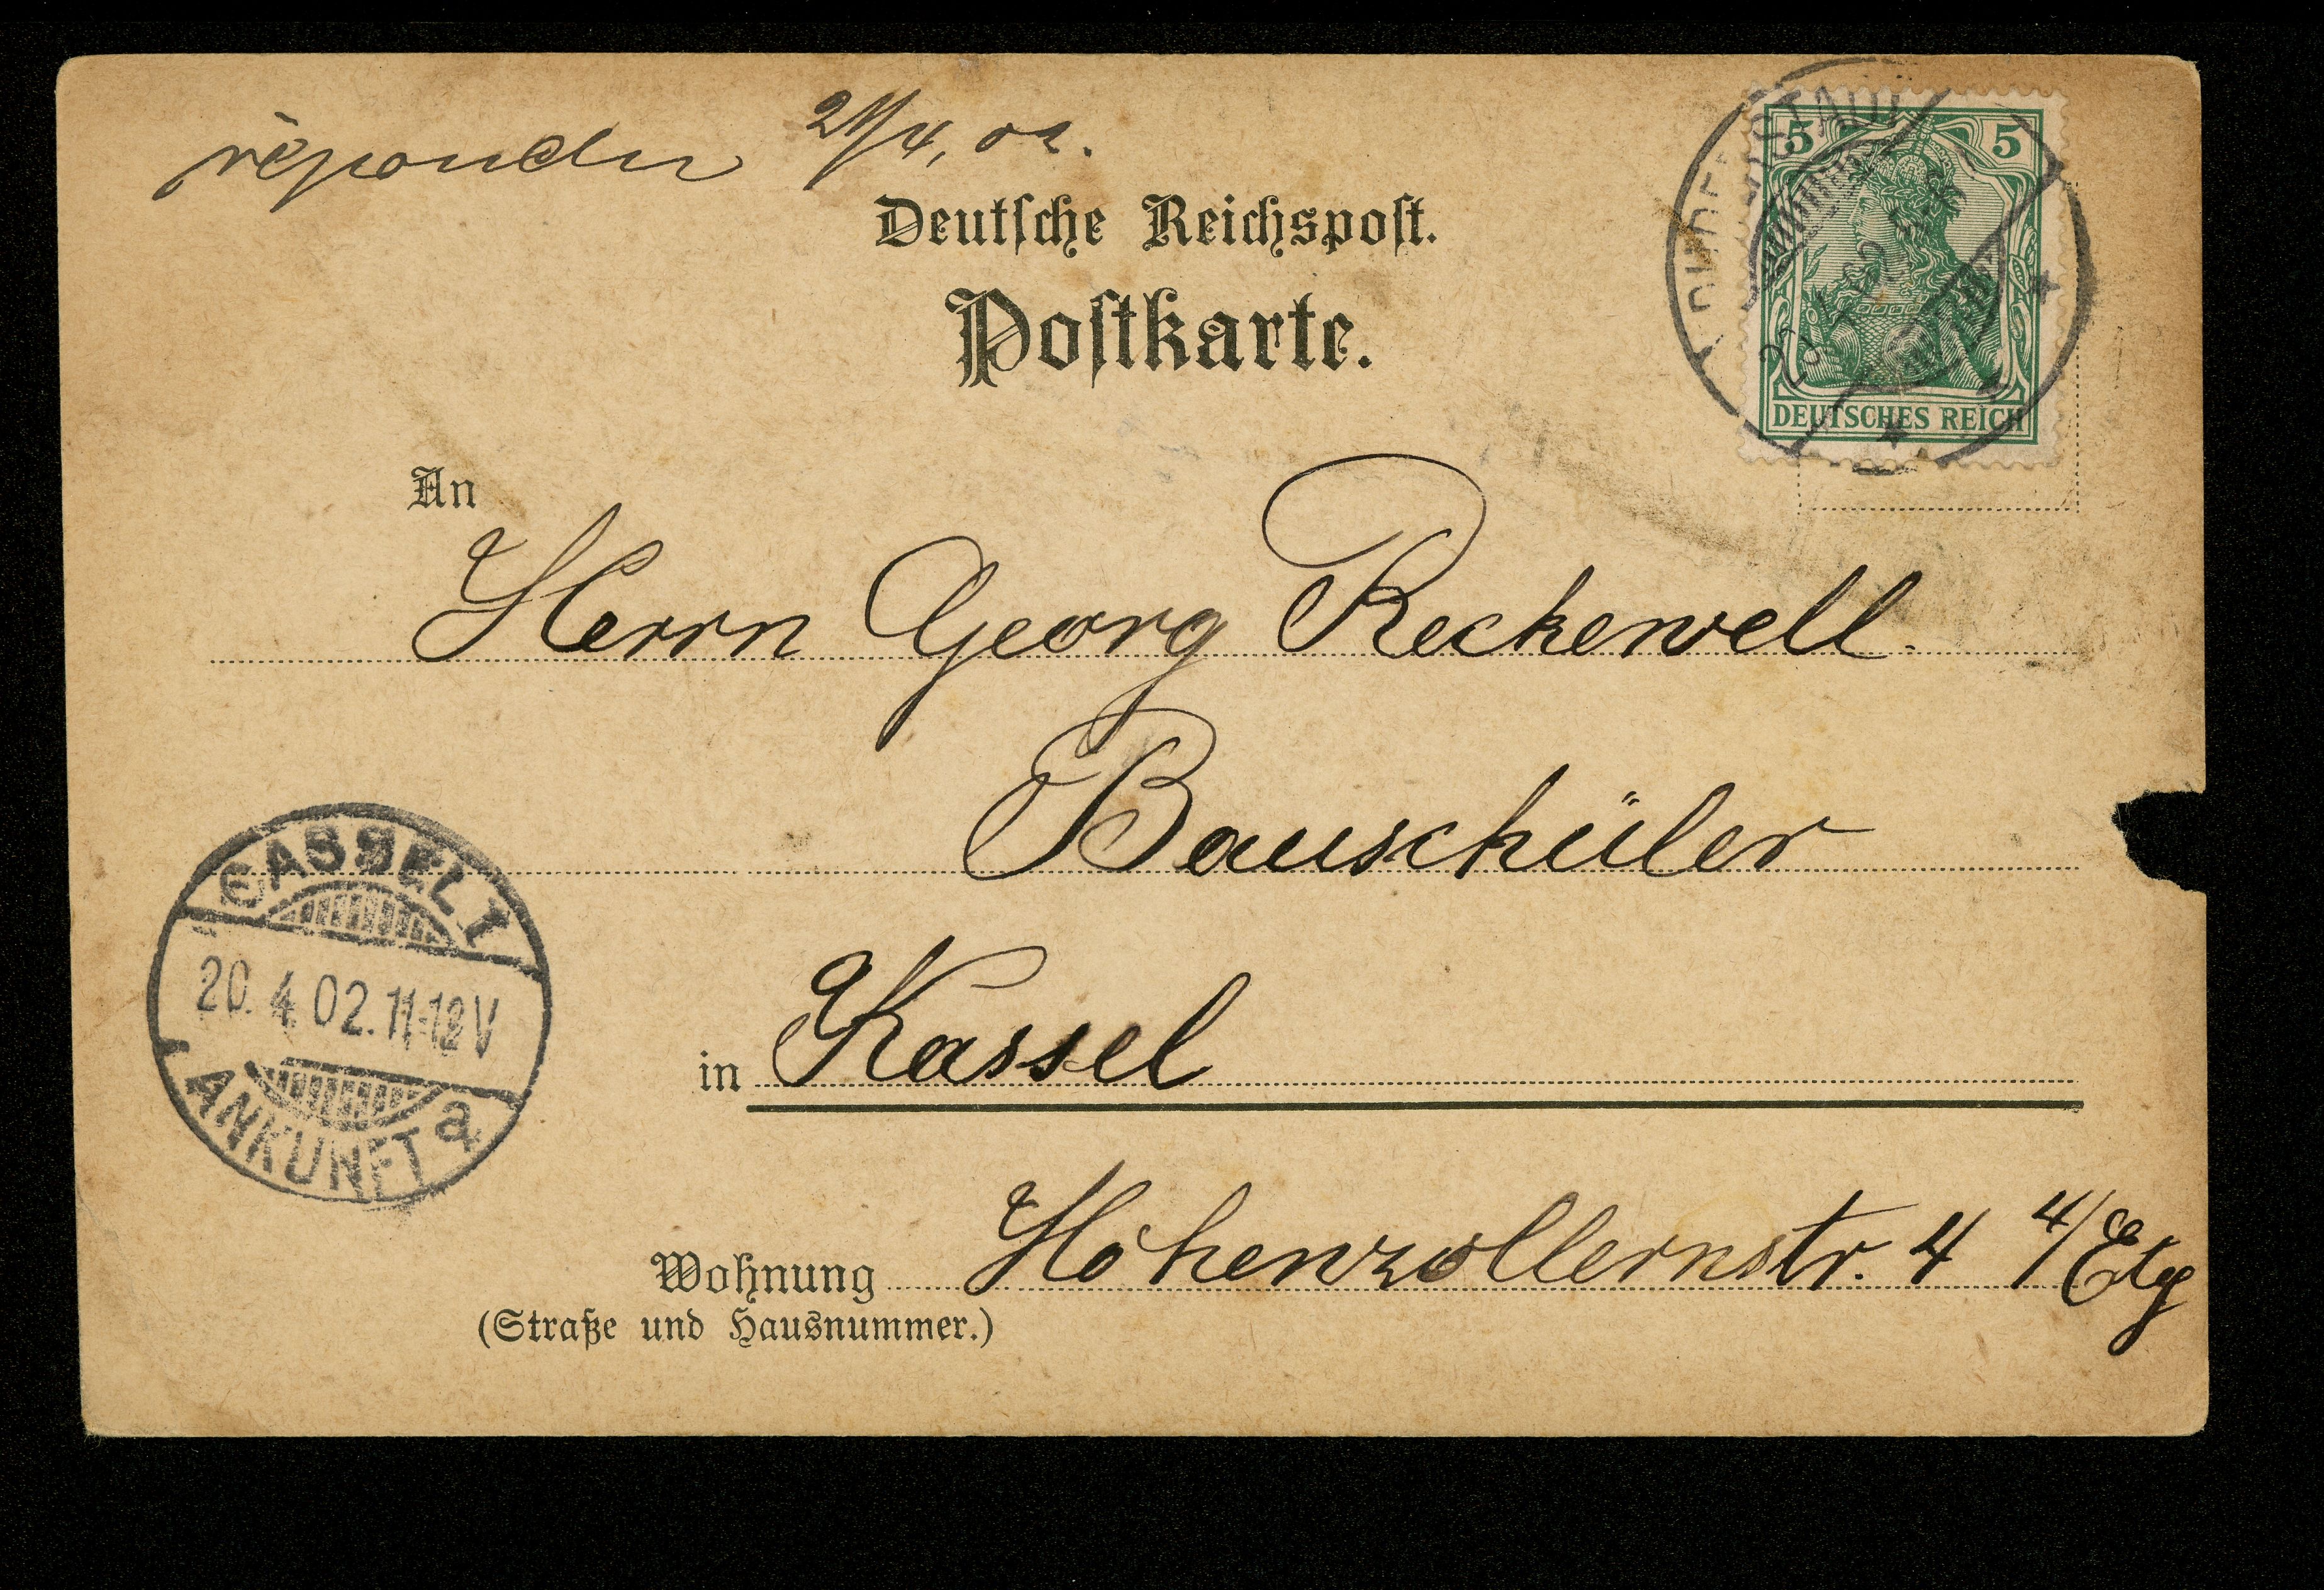 répondu 21/4, 02.
Deutsche Reichspost.
Postkarte.
5 5
DEUTSCHES REICH
An
Herrn Georg Reckewell.
Bauschüler
in Kassel
Wohnung Hohenzollernstr. 4 4/Etg
(Straße und Hausnummer.)
CASSEL 1
20. 4. 02. 11-12 V
ANKUNFT a